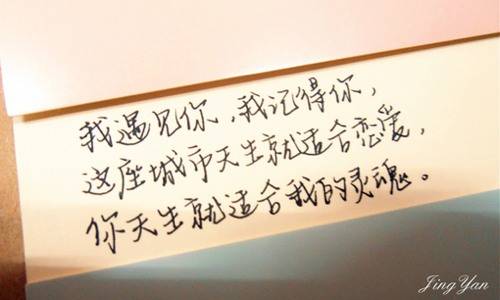 我遇见你,我记得你,
这座城市天生就适合恋爱,
你天生就适合我的灵魂。
Jing Yan